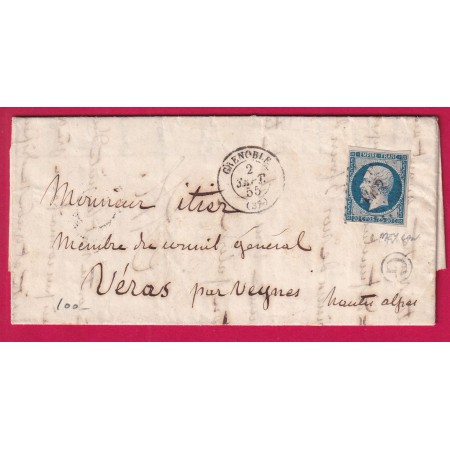 GRENOBLE
2
SEPT.
55
(37)
EMPIRE FRANC.
20 C. POSTES 20 C.
Monsieur itier
Membre du conseil général
Véras par Veynes
hautes alpes
100-